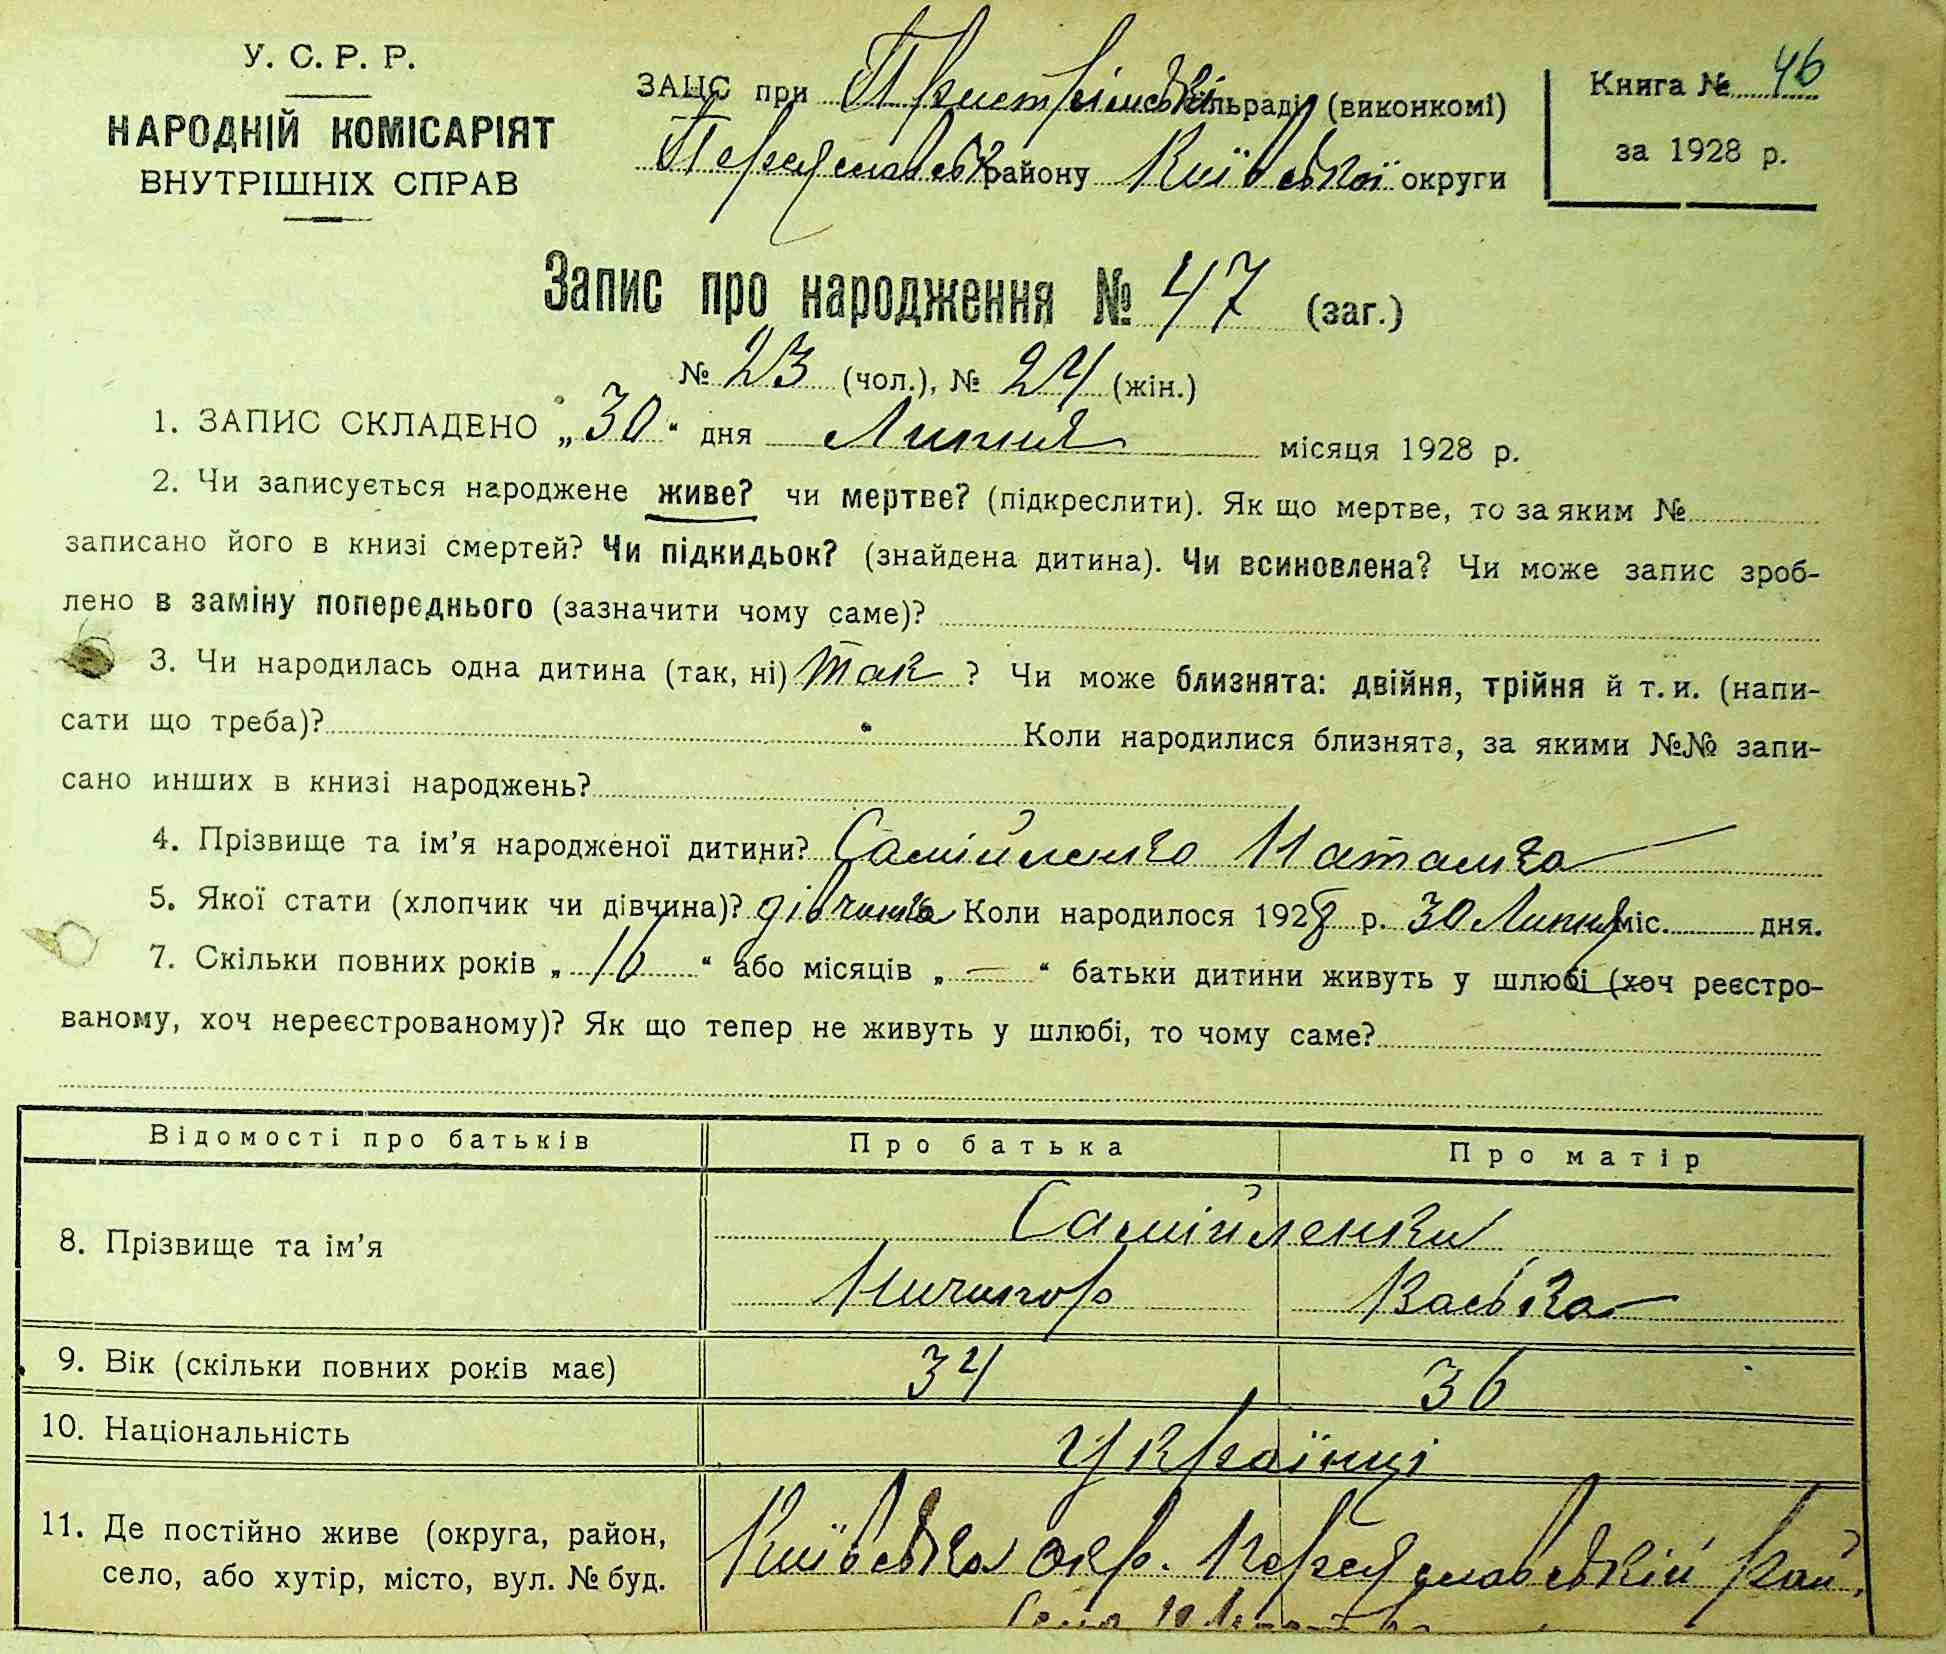 У. С. Р. Р.
НАРОДНІЙ КОМІСАРІЯТ
ВНУТРІШНІХ СПРАВ
ЗАЦС при Пристрімській сільраді (виконкомі)
Переяславськ району Київської округи
Книга № 46
за 1928 р.
Запис про народження № 47 (заг.)
№ 23 (чол.), № 24 (жін.)
1. ЗАПИС СКЛАДЕНО „30“ дня Липня місяця 1928 р.
2. Чи записується народжене живе? чи мертве? (підкреслити). Як що мертве, то за яким №
записано його в книзі смертей? Чи підкидьок? (знайдена дитина). Чи всиновлена? Чи може запис зроб-
лено в заміну попереднього (зазначити чому саме)?
3. Чи народилась одна дитина (так, ні) Так ? Чи може близнята: двійня, трійня й т. и. (напи-
сати що треба)? Коли народилися близнята, за якими №№ запи-
сано инших в книзі народжень?
4. Прізвище та ім’я народженої дитини? Самійленко Наталка
5. Якої стати (хлопчик чи дівчина)? дівчинка Коли народилося 1928 р. 30 Липня міс. дня.
7. Скільки повних років „16“ або місяців „—“ батьки дитини живуть у шлюбі (хоч реєстро-
ваному, хоч нереєстрованому)? Як що тепер не живуть у шлюбі, то чому саме?
Відомості про батьків Про батька Про матір
8. Прізвище та ім’я Самійленки
Ничипор Васька
9. Вік (скільки повних років має) 34 36
10. Національність Українці
11. Де постійно живе (округа, район,
село, або хутір, місто, вул. № буд.
Київська окр. Переяславський рай.
Село